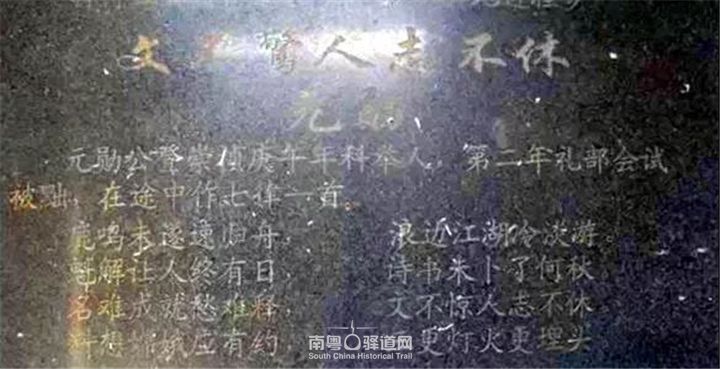 文不惊人志不休
元勋
元勋公登崇祯庚午年科举人，第二年礼部会试
被黜，在途中作七律一首。
鹿鸣未遂遽归舟， 浪迹江湖冷淡游。
解让人终有日， 诗书未卜了何秋
名难成就愁难释， 文不惊人志不休。
料想嫦娥应有约 更灯火更埋头
南粤古驿道网
South China Historical Trail